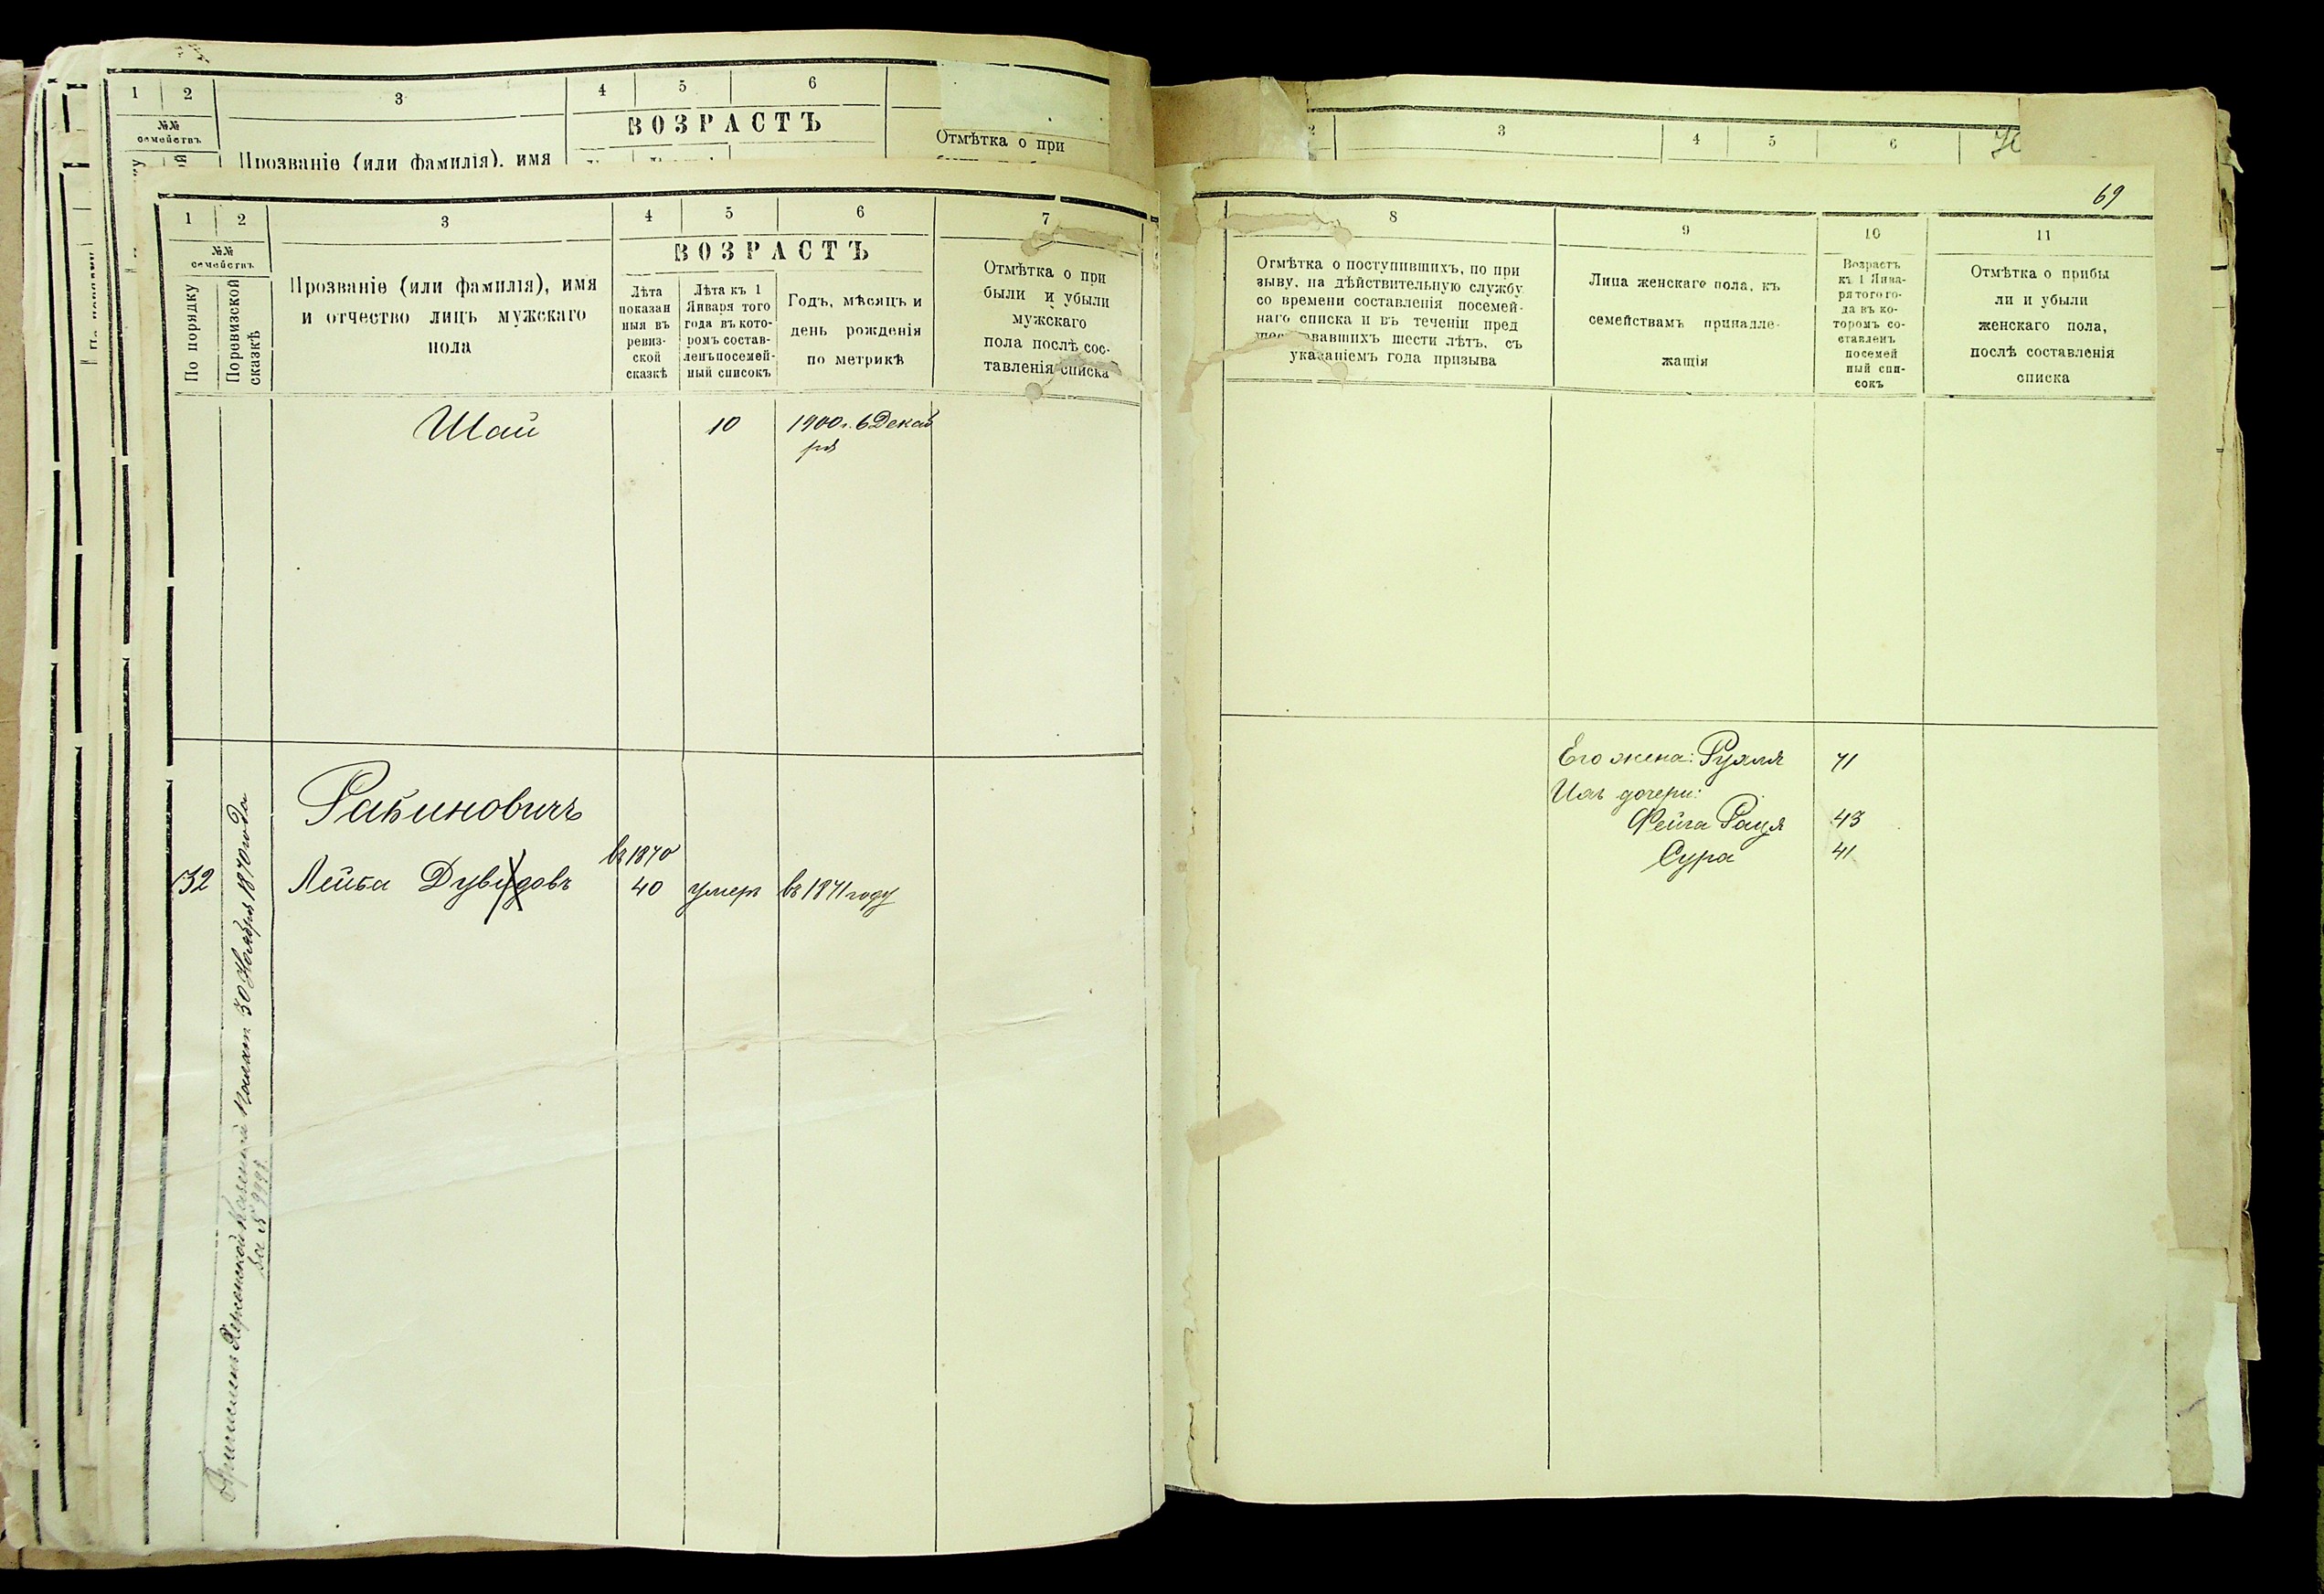 1 2 3 4 5 6
№№ семействъ
ВОЗРАСТЪ
Прозваніе (или фамилія), имя
Отмѣтка о при
1 2 3 4 5 6 7
№№ семействъ
По порядку
По ревизской сказкѣ
Прозваніе (или фамилія), имя
и отчество лицъ мужскаго
пола
ВОЗРАСТЪ
Лѣта
показан
ныя въ
ревиз-
ской
сказкѣ
Лѣта къ 1
Января того
года въ кото-
ромъ состав-
ленъ посемей-
ный списокъ
Годъ, мѣсяцъ и
день рожденія
по метрикѣ
Отмѣтка о при
были и убыли
мужскаго
пола послѣ сос-
тавленія списка
Шая 10 1900 г. 6 Декаб
ря
Рабиновичъ
въ 1870
132 Лейба Дувидовъ 40 умеръ въ 1871 году
Причисленъ Херсонской Казенной Палат 30 Ноября 1870 года
за № 9991
3 4 5 6
69
8 9 10 11
Отмѣтка о поступившихъ, по при
зыву, на дѣйствительную службу
со времени составленія посемей-
наго списка и въ теченіи пред
шествовавшихъ шести лѣтъ, съ
указаніемъ года призыва
Лица женскаго пола, къ
семействамъ принадле-
жащія
Возрастъ
къ 1 Янва-
ря того го-
да въ ко-
торомъ со-
ставленъ
посемей
ный спи-
сокъ
Отмѣтка о прибы
ли и убыли
женскаго пола,
послѣ составленія
списка
Его жена: Рухля 71
Ихъ дочери:
Фейга Рауя 43
Сура 41